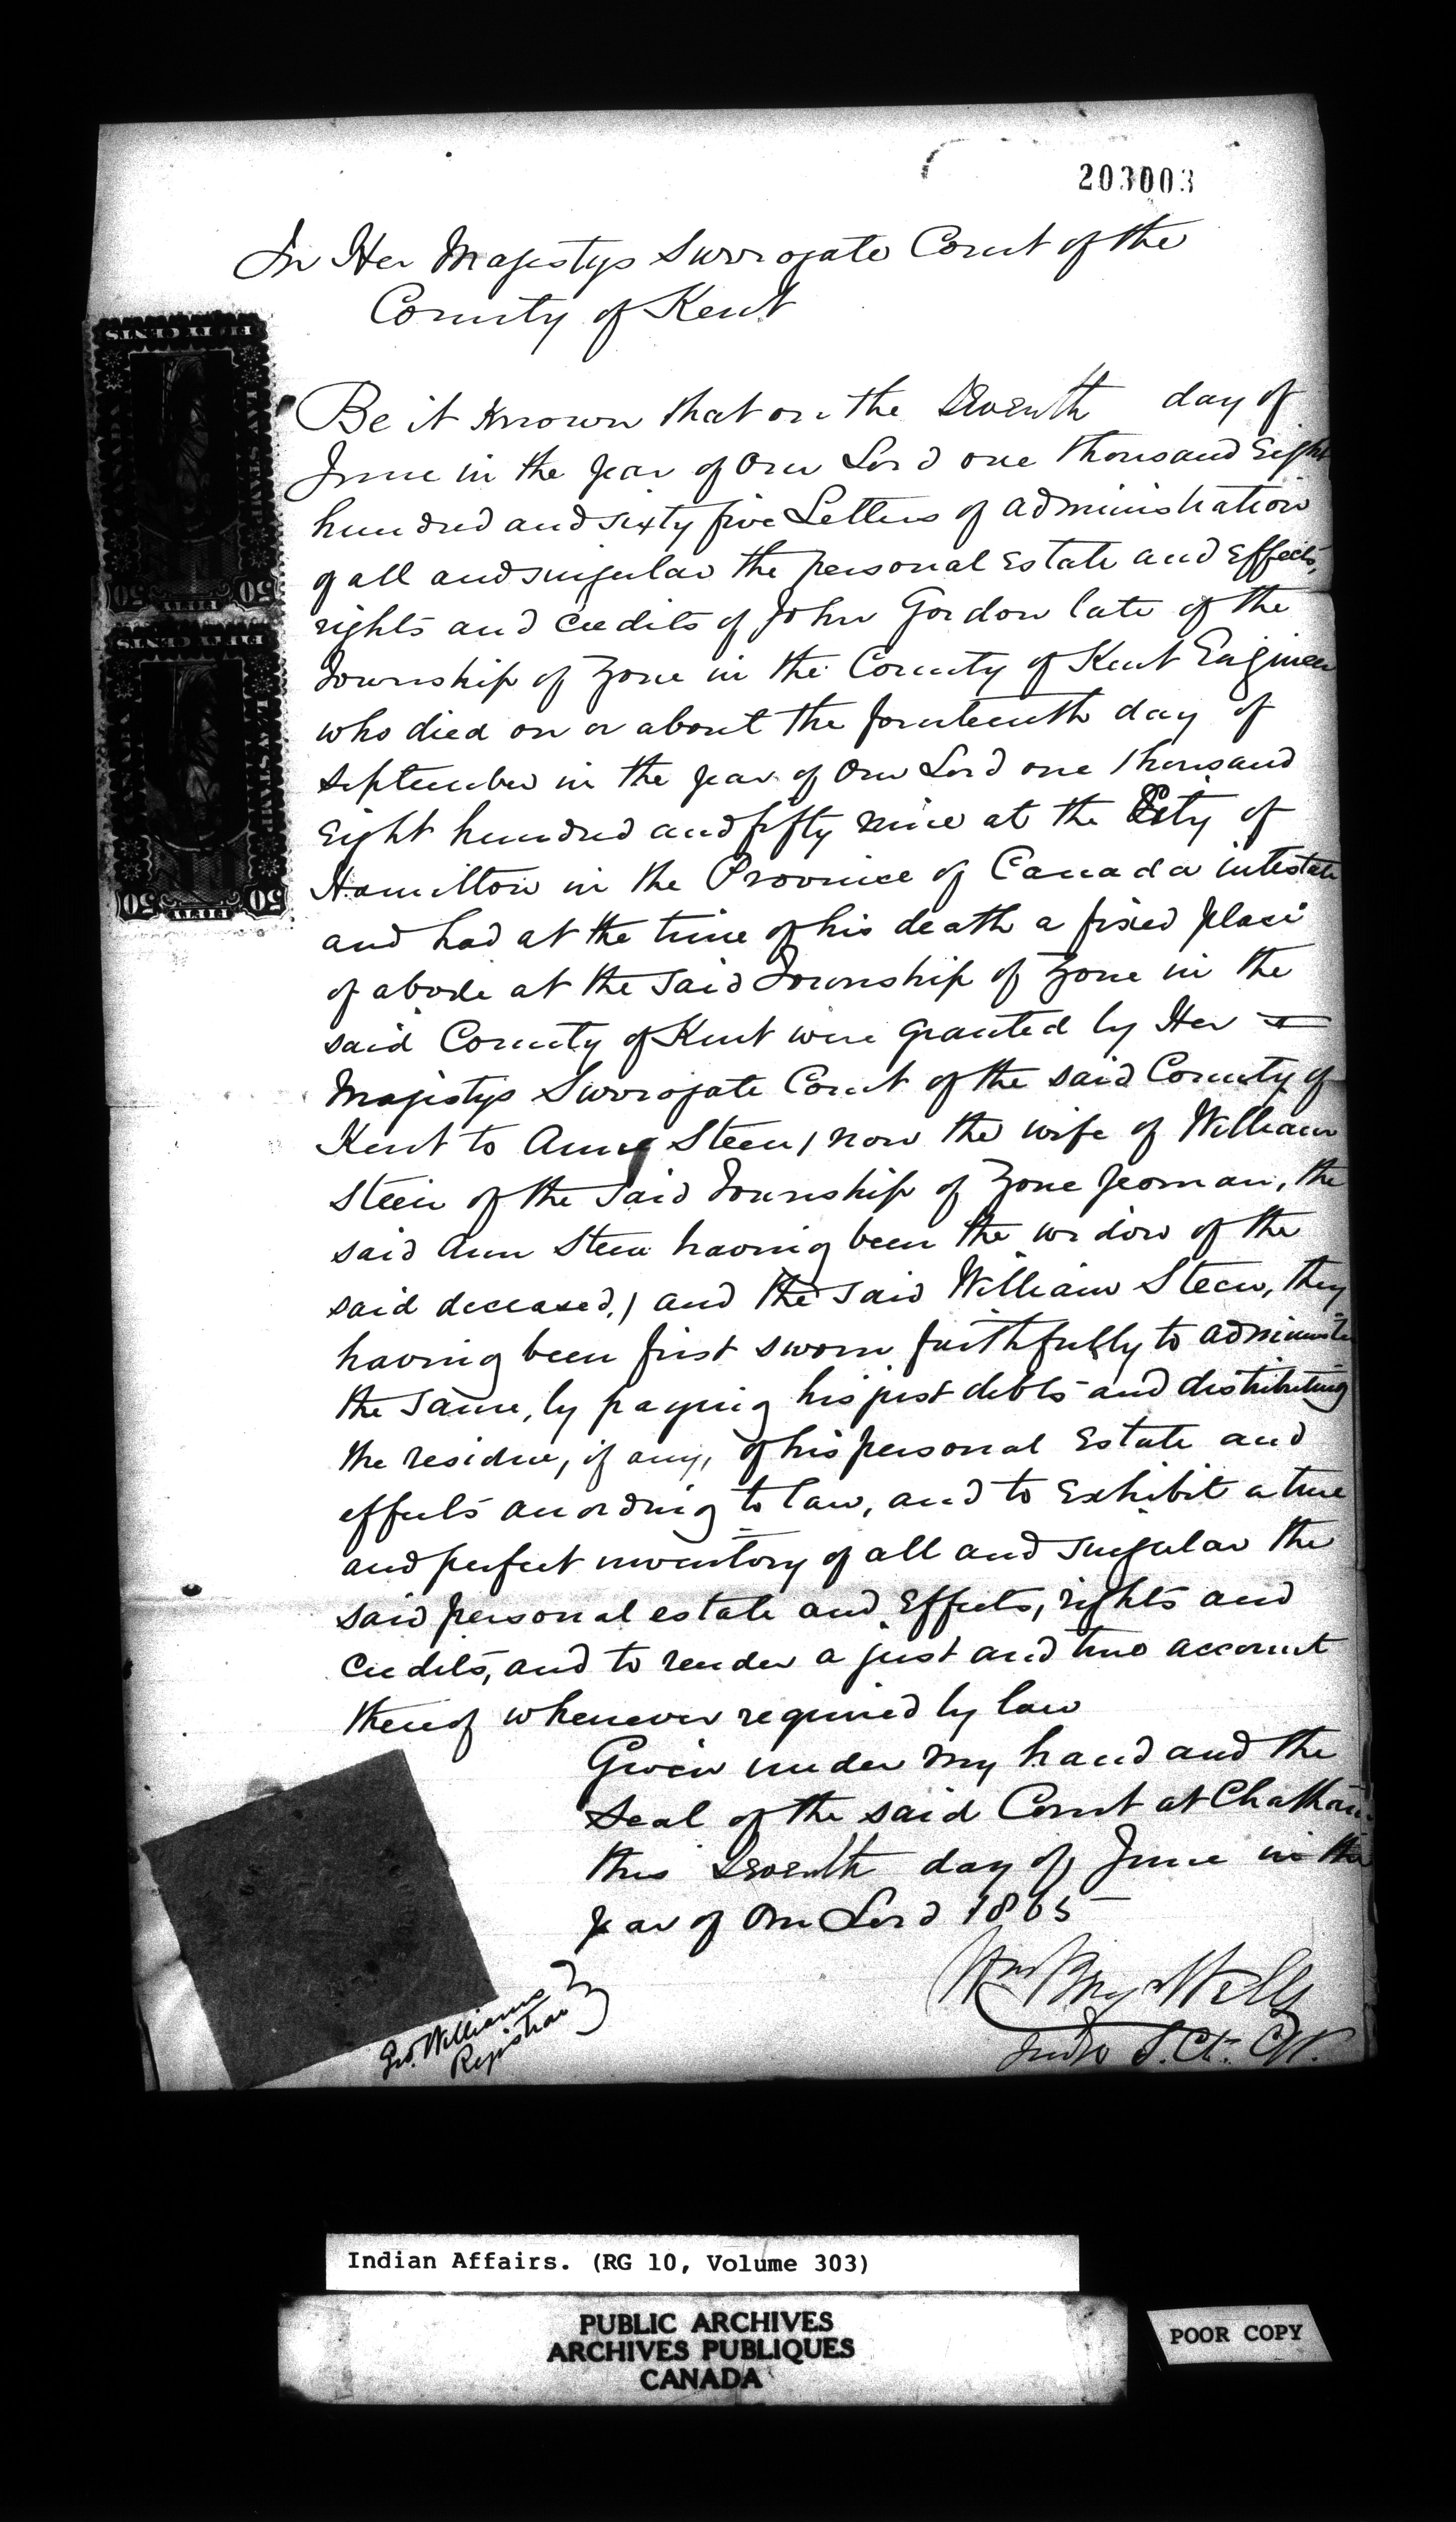 203003
In Her Majestys Surrogate Court of the
County of Kent
FIFTY CENTS
CANADA
LAW STAMP
50 FIFTY 50
FIFTY CENTS
CANADA
LAW STAMP
50 FIFTY 50
Be it Known that on the Seventh day of
June in the year of Our Lord one thousand Eight
hundred and sixty five Letters of administration
of all and singular the personal Estate and Effects,
rights and credits of John Gordon late of the
Township of Zone in the County of Kent Engineer
who died on or about the fourteenth day of
September in the year of Our Lord one thousand
Eight hundred and fifty nine at the City of
Hamilton in the Province of Canada intestate
and had at the time of his death a fixed place
of abode at the said Township of Zone in the
said County of Kent were granted by Her
Majestys Surrogate Court of the said County of
Kent to Ann Steen / now the wife of William
Steen of the said Township of Zone Yeoman, the
said Ann Steen having been the widow of the
said deceased, / and the said William Steen, they
having been first sworn faithfully to administer
the same, by paying his just debts and distributing
the residue, if any, of his personal Estate and
effects according to law, and to Exhibit a true
and perfect inventory of all and singular the
said personal estate and Effects, rights and
credits, and to render a just and true account
thereof whenever required by law
Given under my hand and the
Seal of the said Court at Chatham
this Seventh day of June in the
year of Our Lord 1865
Wells
Judge S. Ct. C.K.
Geo. Williams
Registrar
Indian Affairs. (RG 10, Volume 303)
PUBLIC ARCHIVES
ARCHIVES PUBLIQUES
CANADA
POOR COPY